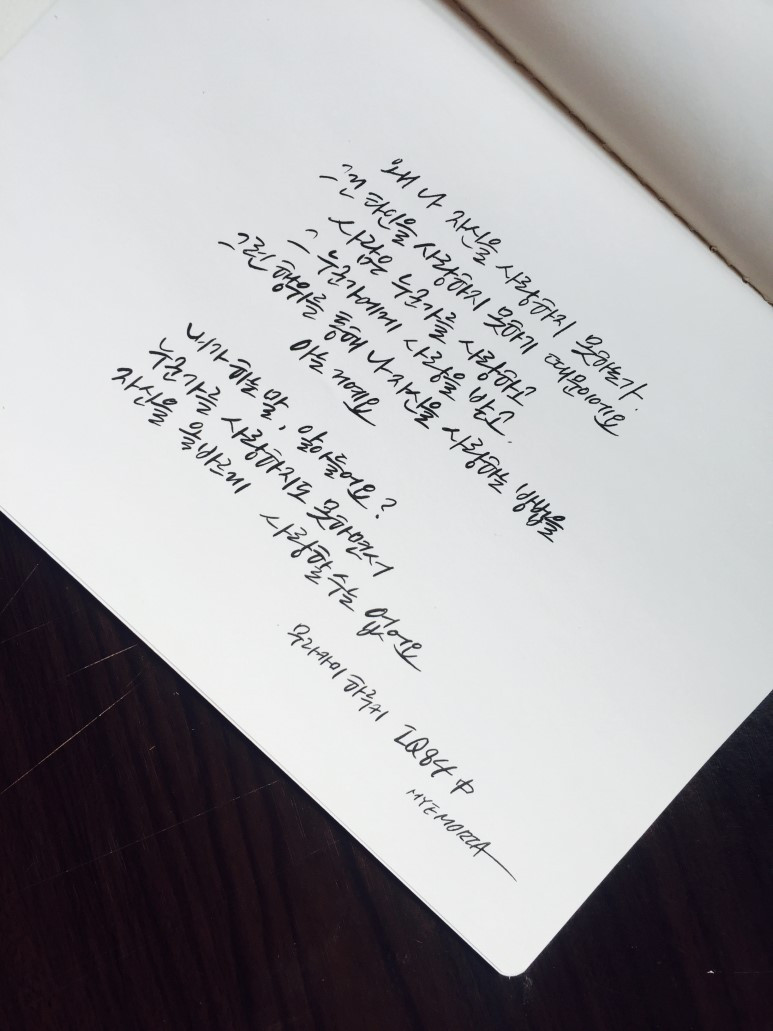 왜 나 자신을 사랑하지 못하는가.
그건 타인을 사랑하지 못하기 때문이에요
사람은 누군가를 사랑하고
그 누군가에게 사랑을 받고.
그런 행위를 통해 나 자신을 사랑하는 방법을
아는 거예요
내가 하는 말, 알아들어요?
누군가를 사랑하지도 못하면서
자신을 올바르게 사랑할 수는 없어요
무라카미 하루키 IQ84 中
MYEMORIA